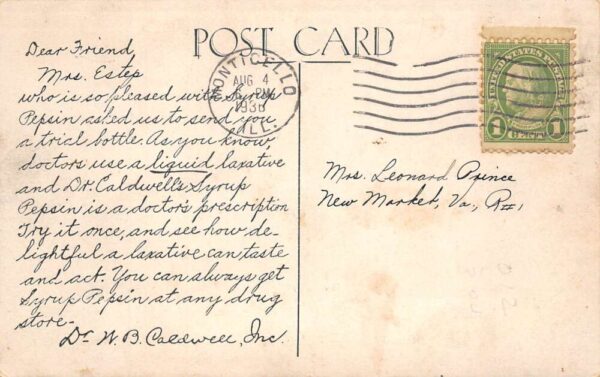 POST CARD
Dear Friend,
Mrs. Estep
who is so pleased with Syrup
Pepsin asked us to send you
a trial bottle. As you know,
doctors use a liquid laxative
and Dr. Caldwell's Syrup
Pepsin is a doctor's prescription
Try it once, and see how de-
lightful a laxative can taste
and act. You can always get
Syrup Pepsin at any drug
store-
Dr. W. B. Caldwell, Inc.
MONTICELLO
AUG 4
PM
ILL.
UNITED STATES POSTAGE
1 1
Mrs. Leonard Prince
New Market, Va, R#1